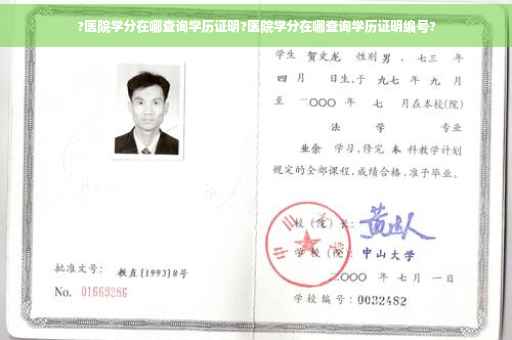 ?医院学分在哪查询学历证明?医院学分在哪查询学历证明编号?
学生 贺文龙 性别 男 、七三 年
四 月 日生,于 九七 年 九 月
至 二〇〇〇 年 七 月在本校(院)
法 学 专业
业余 学习,修完 本 科教学计划
规定的全部课程,成绩合格,准予毕业。
校(院)长:
学 校(院): 中山大学
二〇〇〇 年 七 月 一 日
学校编号: 0032482
批准文号: 教直[1993]8号
No. 01669286